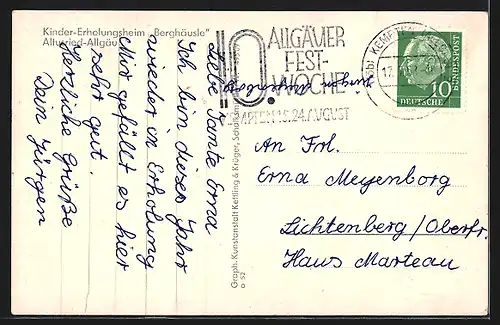 Kinder-Erholungsheim „Berghäusle"
Altusried-Allgäu
Liebe Tante Erna
Ich bin dieses Jahr
wieder in Erholung
Mir gefällt es hier
sehr gut.
Herzliche Grüße
Dein Jürgen
Jürgen Meyenborg
10. ALLGÄUER
FEST-
WOCHE
KEMPTEN 16.-24. AUGUST
KEMPTEN
17.
DEUTSCHE
BUNDESPOST
10
Graph. Kunstanstalt Kettling & Krüger,
a 52
An Frl.
Erna Meyenborg
Lichtenberg/Oberfr.
Haus Marteau